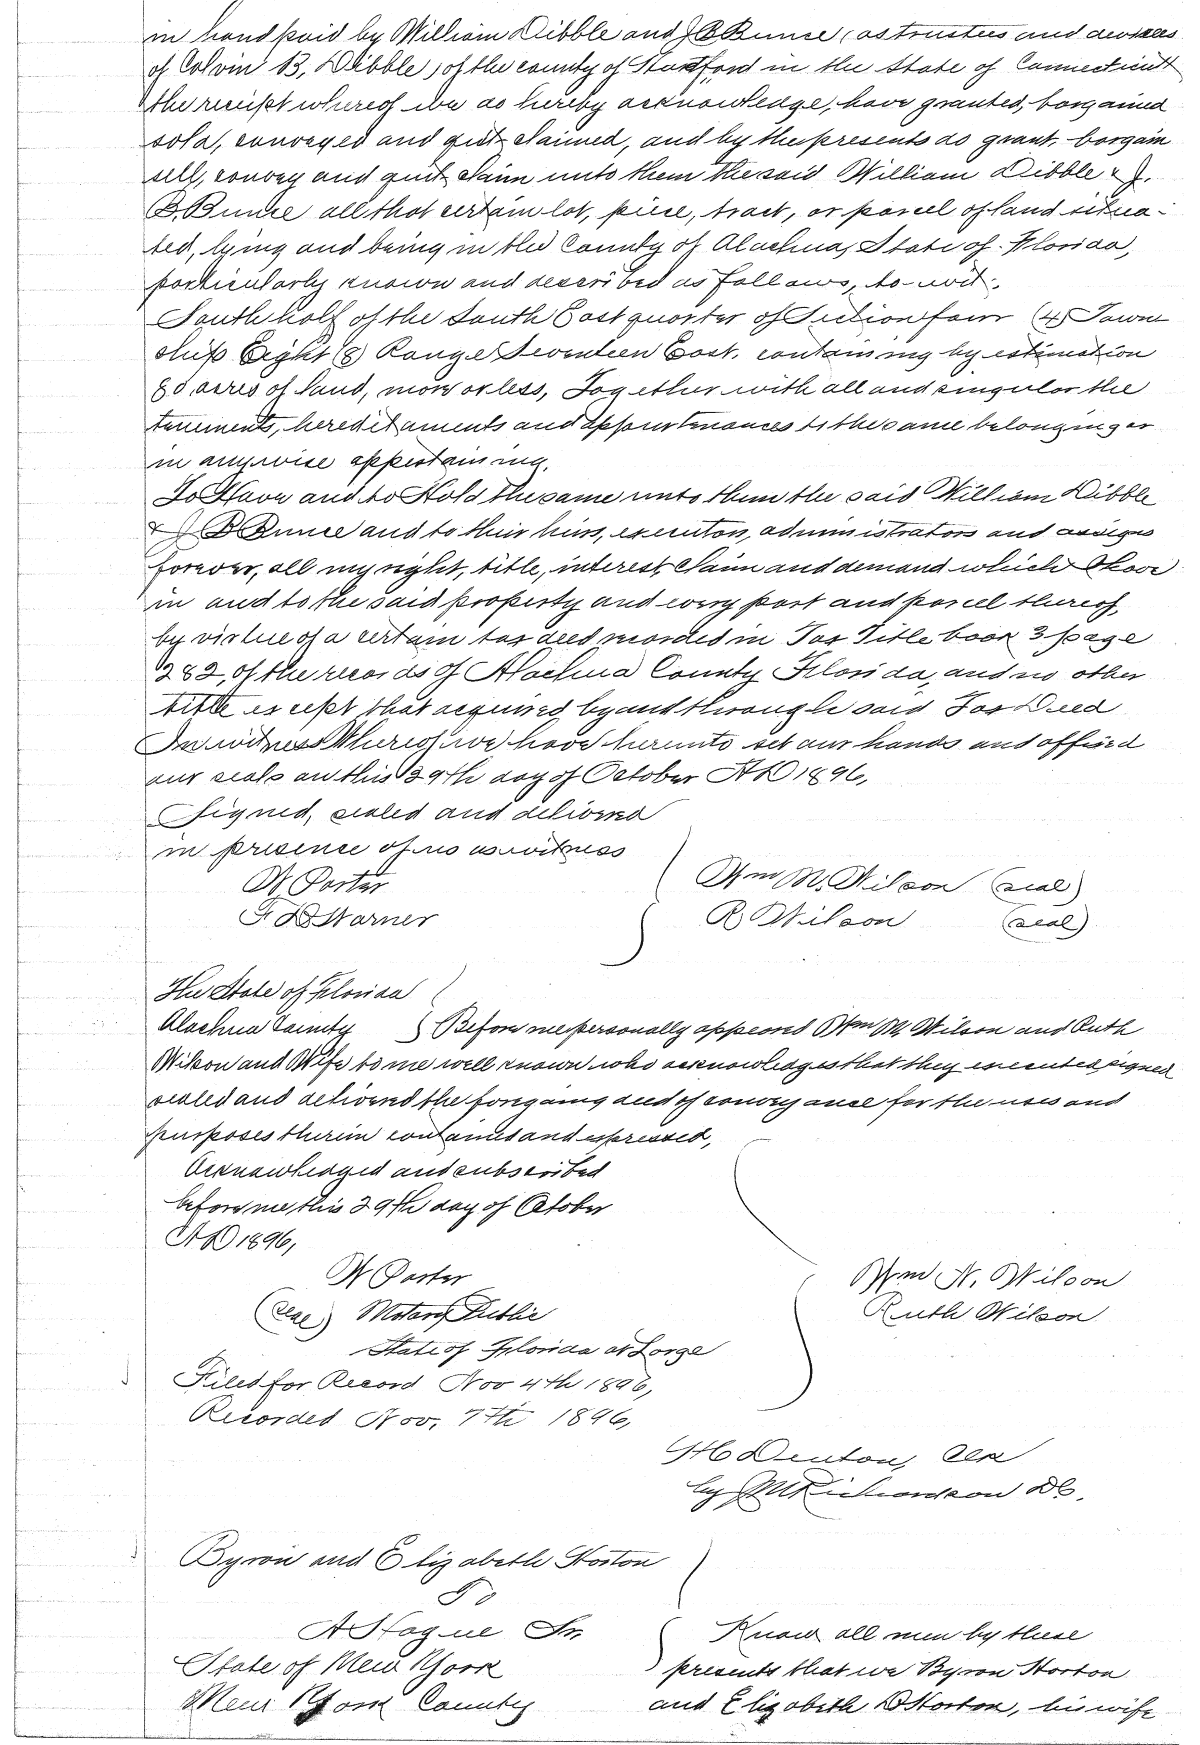 in hand paid by William Dibble and J B Bunce (as trustees and devisees
of Colvin B, Dibble) of the county of Hartford in the State of Connecticut
the receipt whereof we do hereby acknowledge, have granted, bargained
sold, conveyed and quit claimed, and by the presents do grant, bargain
sell, convey and quit claim unto them the said William Dibble & J.
B. Bunce all that certain lot, piece, tract, or parcel of land situa-
ted, lying and being in the County of Alachua, State of Florida,
particularly known and described as follows, to-wit:
South half of the South East quarter of Section four (4) Town
ship Eight (8) Range Seventeen East, containing by estimation
80 acres of land, more or less, Together with all and singular the
tenements, hereditaments and appurtenances to the same belonging or
in anywise appertaining.
To Have and to Hold the same unto them the said William Dibble
& J B Bunce and to their heirs, executors, administrators and assigns
forever, all my right, title, interest, claim and demand which I have
in and to the said property and every part and parcel thereof,
by virtue of a certain tax deed recorded in Tax Title book 3 page
282, of the records of Alachua County Florida, and no other
title except that acquired by and through said Tax Deed
In witness Whereof we have hereunto set our hands and affixed
our seals on this 29th day of October A D 1896,
Signed, sealed and delivered
in presence of us as witness
W Porter
Wm M. Wilson (seal)
F D Warner
R Wilson (seal)
The State of Florida
Alachua County } Before me personally appeared Wm M Wilson and Ruth
Wilson and Wife to me well known who acknowledges that they executed, signed
sealed and delivered the foregoing deed of conveyance for the uses and
purposes therein contained and expressed,
Acknowledged and subscribed
before me this 29th day of October
A D 1896,
W Porter
Wm N. Wilson
(Seal) Notary Public
Ruth Wilson
State of Florida at Large
Filed for Record Nov 4th 1896,
Recorded Nov. 7th 1896,
Denton, Clk
by Richardson DC.
Byron and Elizabeth Horton
To
A Hague Jr.
Know all men by these
State of New York
presents that we Byron Horton
New York County
and Elizabeth D Horton, his wife